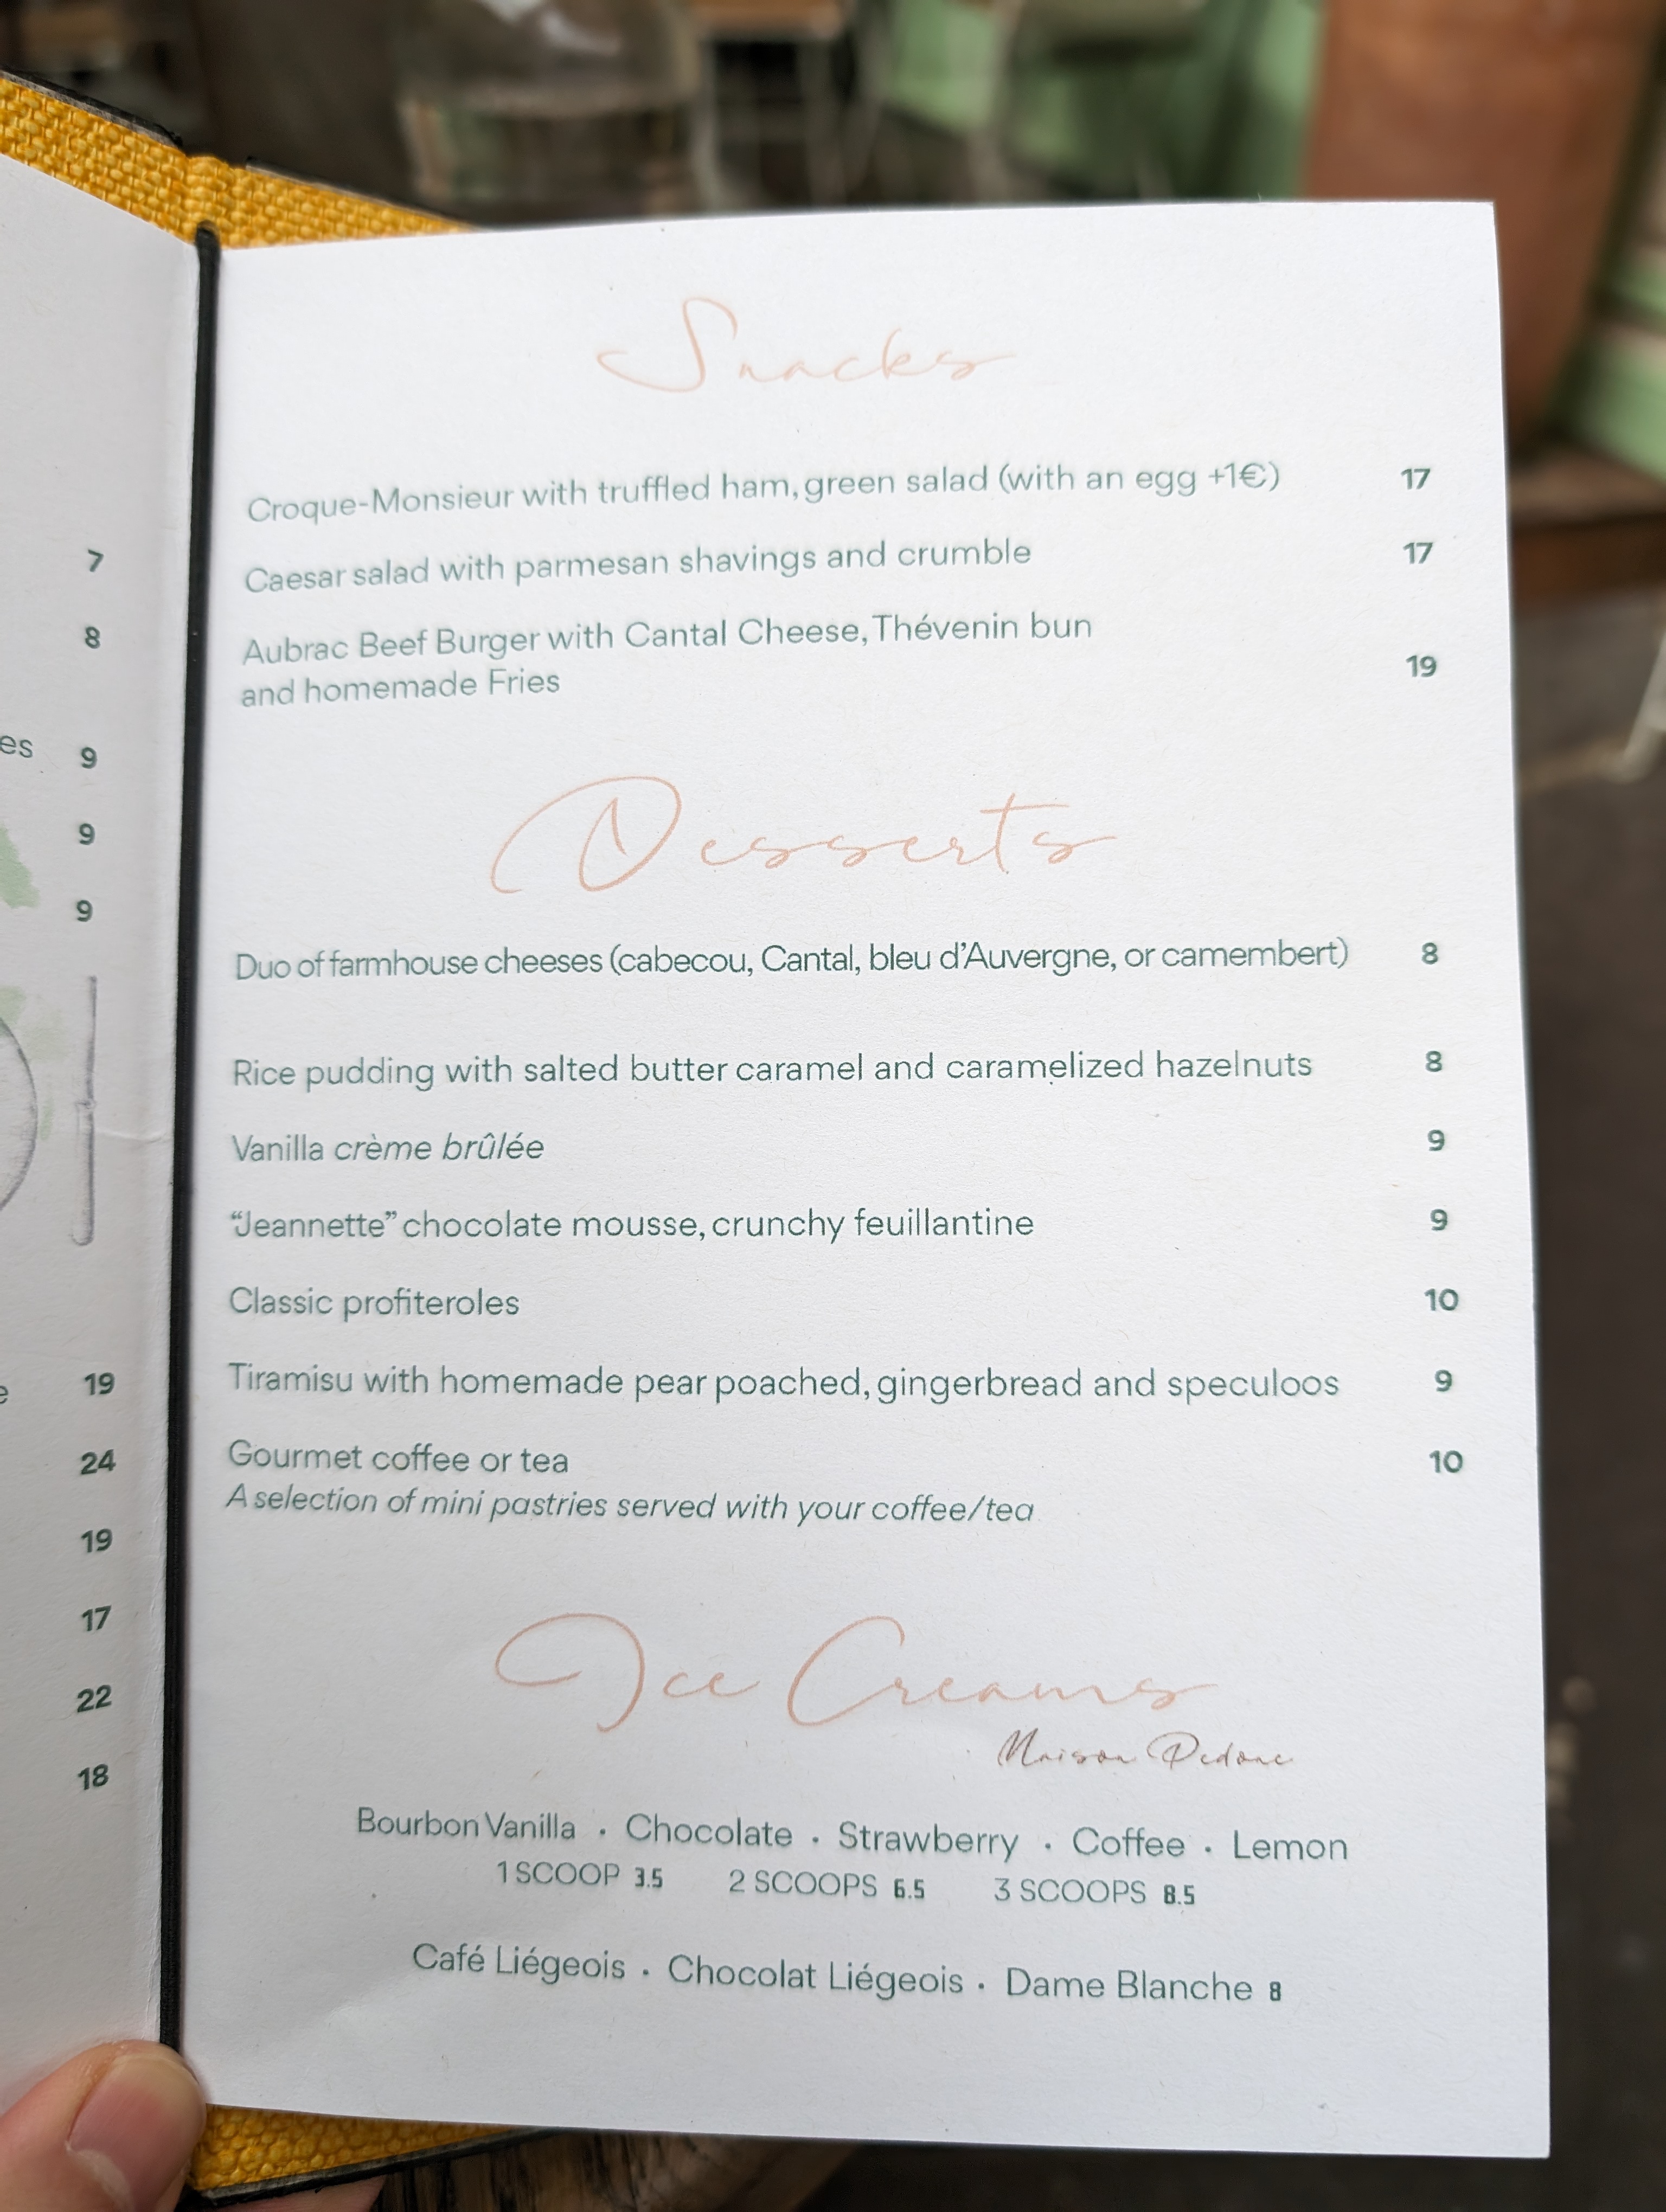 7
8
es 9
9
9
19
24
19
17
22
18
Snacks
Croque-Monsieur with truffled ham, green salad (with an egg +1€) 17
Caesar salad with parmesan shavings and crumble 17
Aubrac Beef Burger with Cantal Cheese, Thévenin bun
and homemade Fries 19
Desserts
Duo of farmhouse cheeses (cabecou, Cantal, bleu d'Auvergne, or camembert) 8
Rice pudding with salted butter caramel and caramelized hazelnuts 8
Vanilla crème brûlée 9
“Jeannette” chocolate mousse, crunchy feuillantine 9
Classic profiteroles 10
Tiramisu with homemade pear poached, gingerbread and speculoos 9
Gourmet coffee or tea 10
A selection of mini pastries served with your coffee/tea
Ice Creams
Maison Pedone
Bourbon Vanilla · Chocolate · Strawberry · Coffee · Lemon
1 SCOOP 3.5 2 SCOOPS 6.5 3 SCOOPS 8.5
Café Liégeois · Chocolat Liégeois · Dame Blanche 8